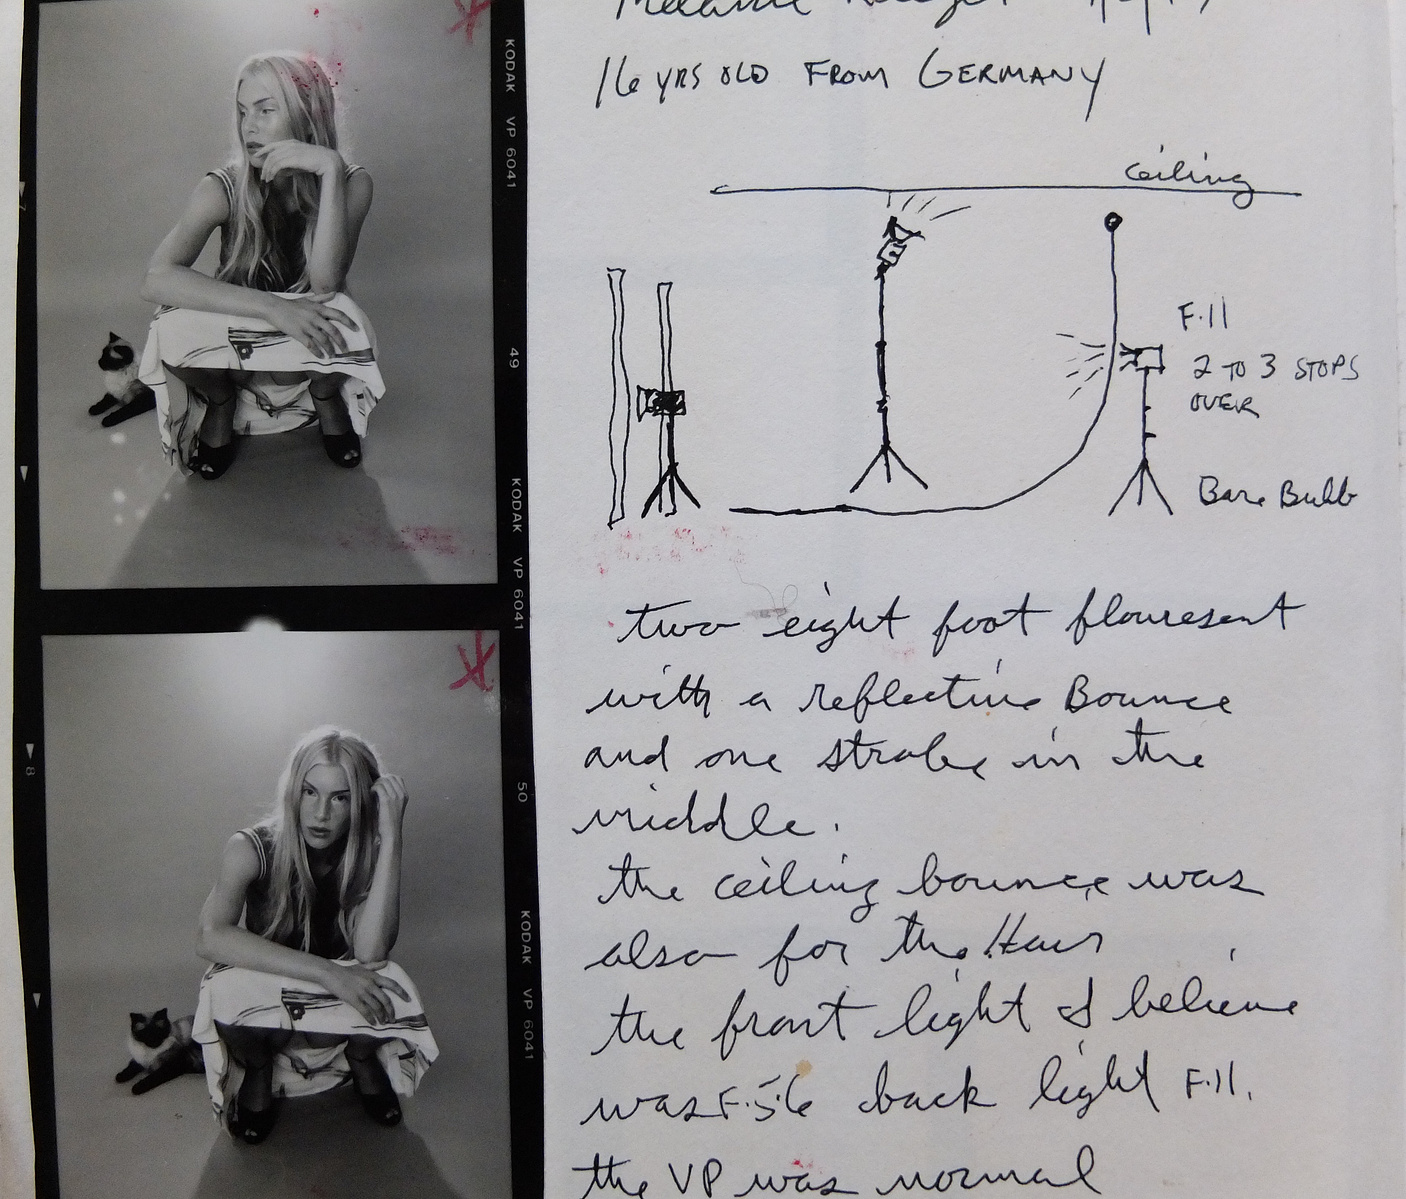 KODAK VP 6041
49
KODAK VP 6041
8
50
KODAK VP 6041
Melanie
16 YRS OLD FROM GERMANY
ceiling
F.11
2 TO 3 STOPS
OVER
Bare Bulb
two eight foot flouresent
with a reflective Bounce
and one strobe in the
middle.
the ceiling bounce was
also for the Hair
the front light I believe
was F.5.6 back light F.11.
the VP was normal